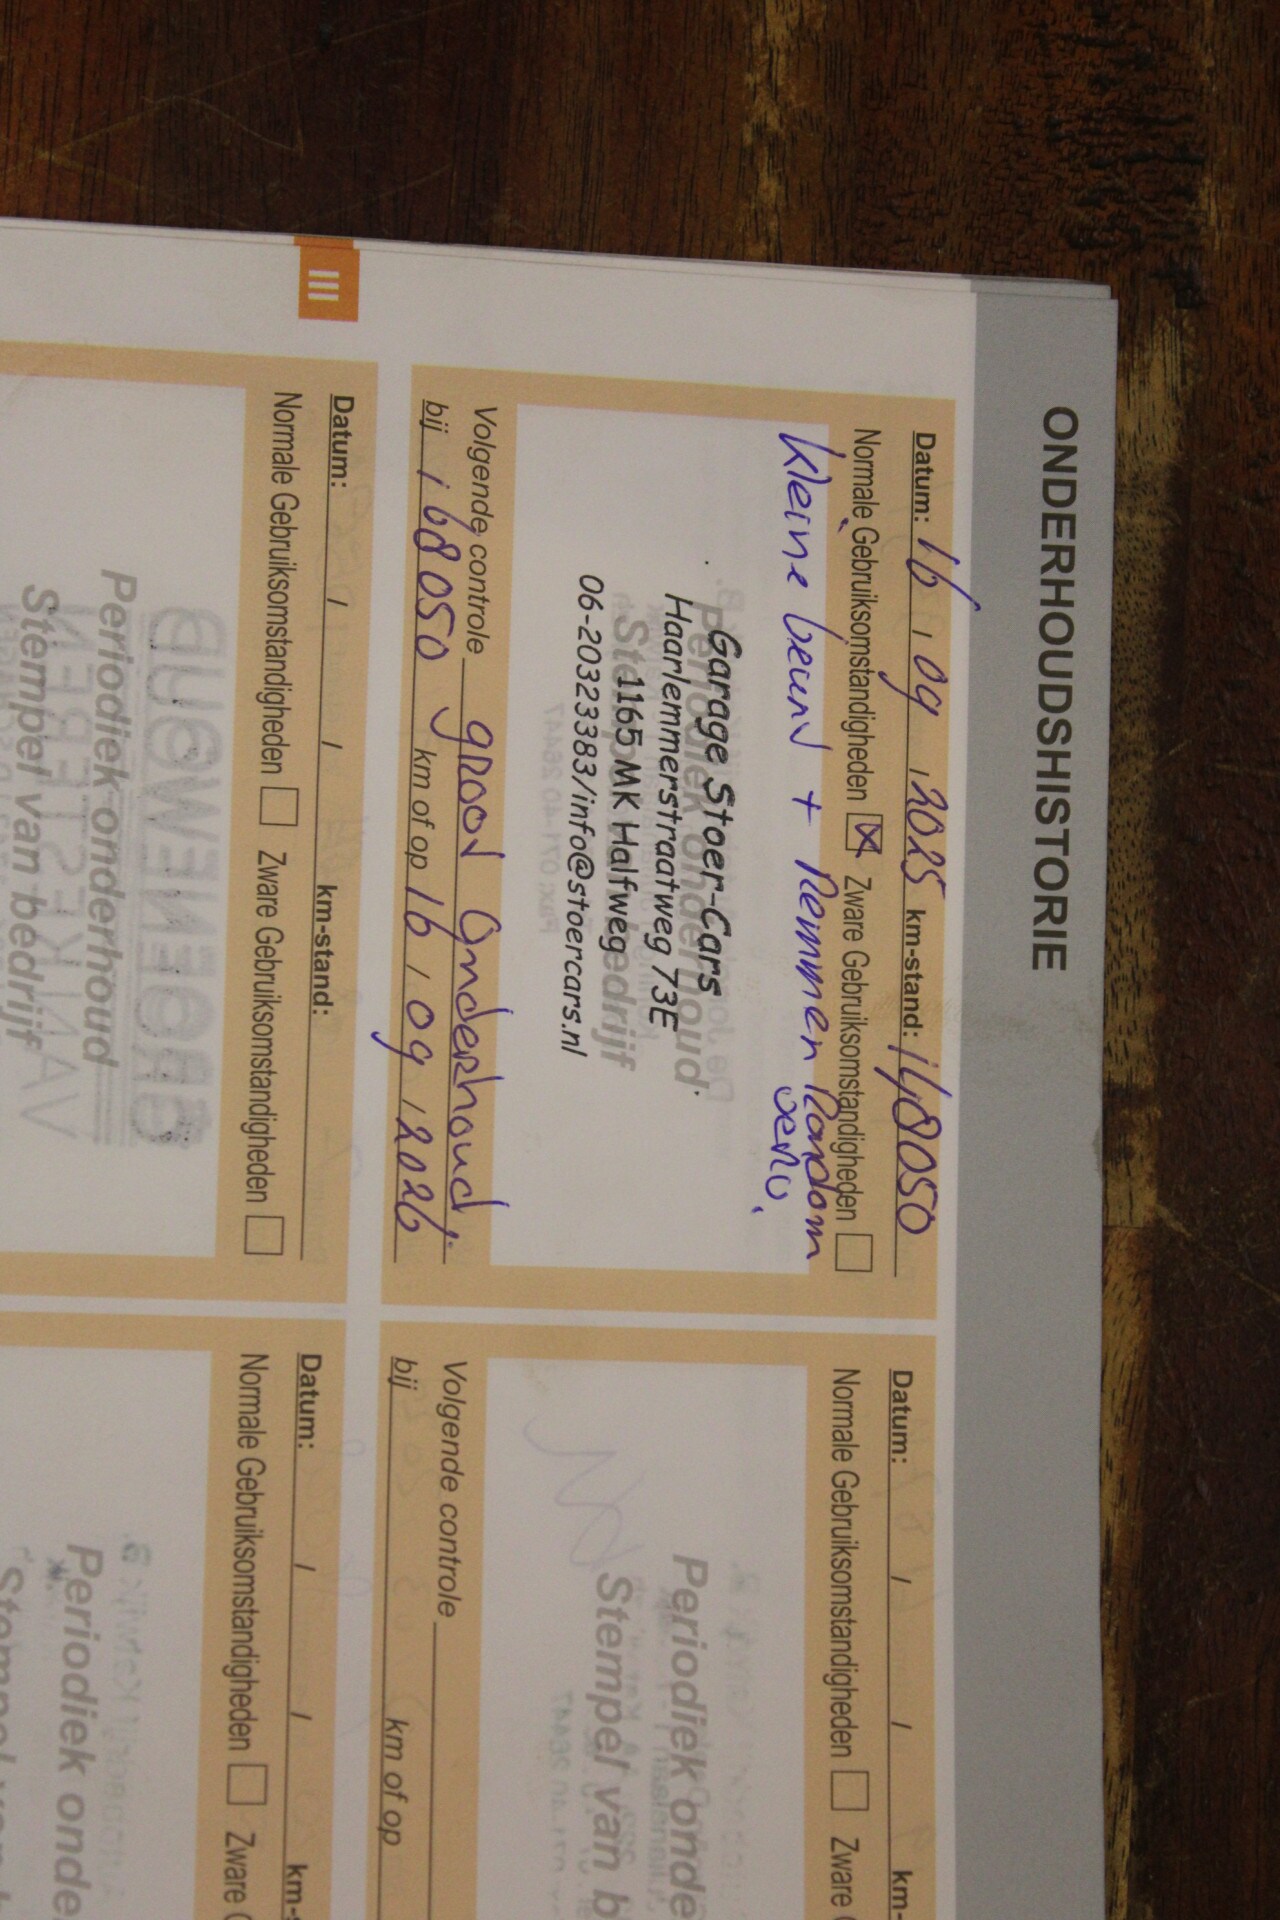 ONDERHOUDSHISTORIE
Datum: 16 / 09 / 2025 km-stand: 148050
Normale Gebruiksomstandigheden ☒ Zware Gebruiksomstandigheden ☐
kleine beurt + Remmen Rondom
Garage Stoer-Cars
Haarlemmerstraatweg 73E
1165 MK Halfweg
06-20323383/info@stoercars.nl
Periodiek onderhoud
Stempel van bedrijf
Volgende controle groot Onderhoud.
bij 168050 km of op 16 / 09 / 2026
Datum: / / km-
Normale Gebruiksomstandigheden ☐ Zware
Periodiek onde
Stempel van b
Volgende controle
bij km of op
III
Datum: / / km-stand:
Normale Gebruiksomstandigheden ☐ Zware Gebruiksomstandigheden ☐
Periodiek onderhoud
Stempel van bedrijf
Datum: / / km-s
Normale Gebruiksomstandigheden ☐ Zware
Periodiek onde